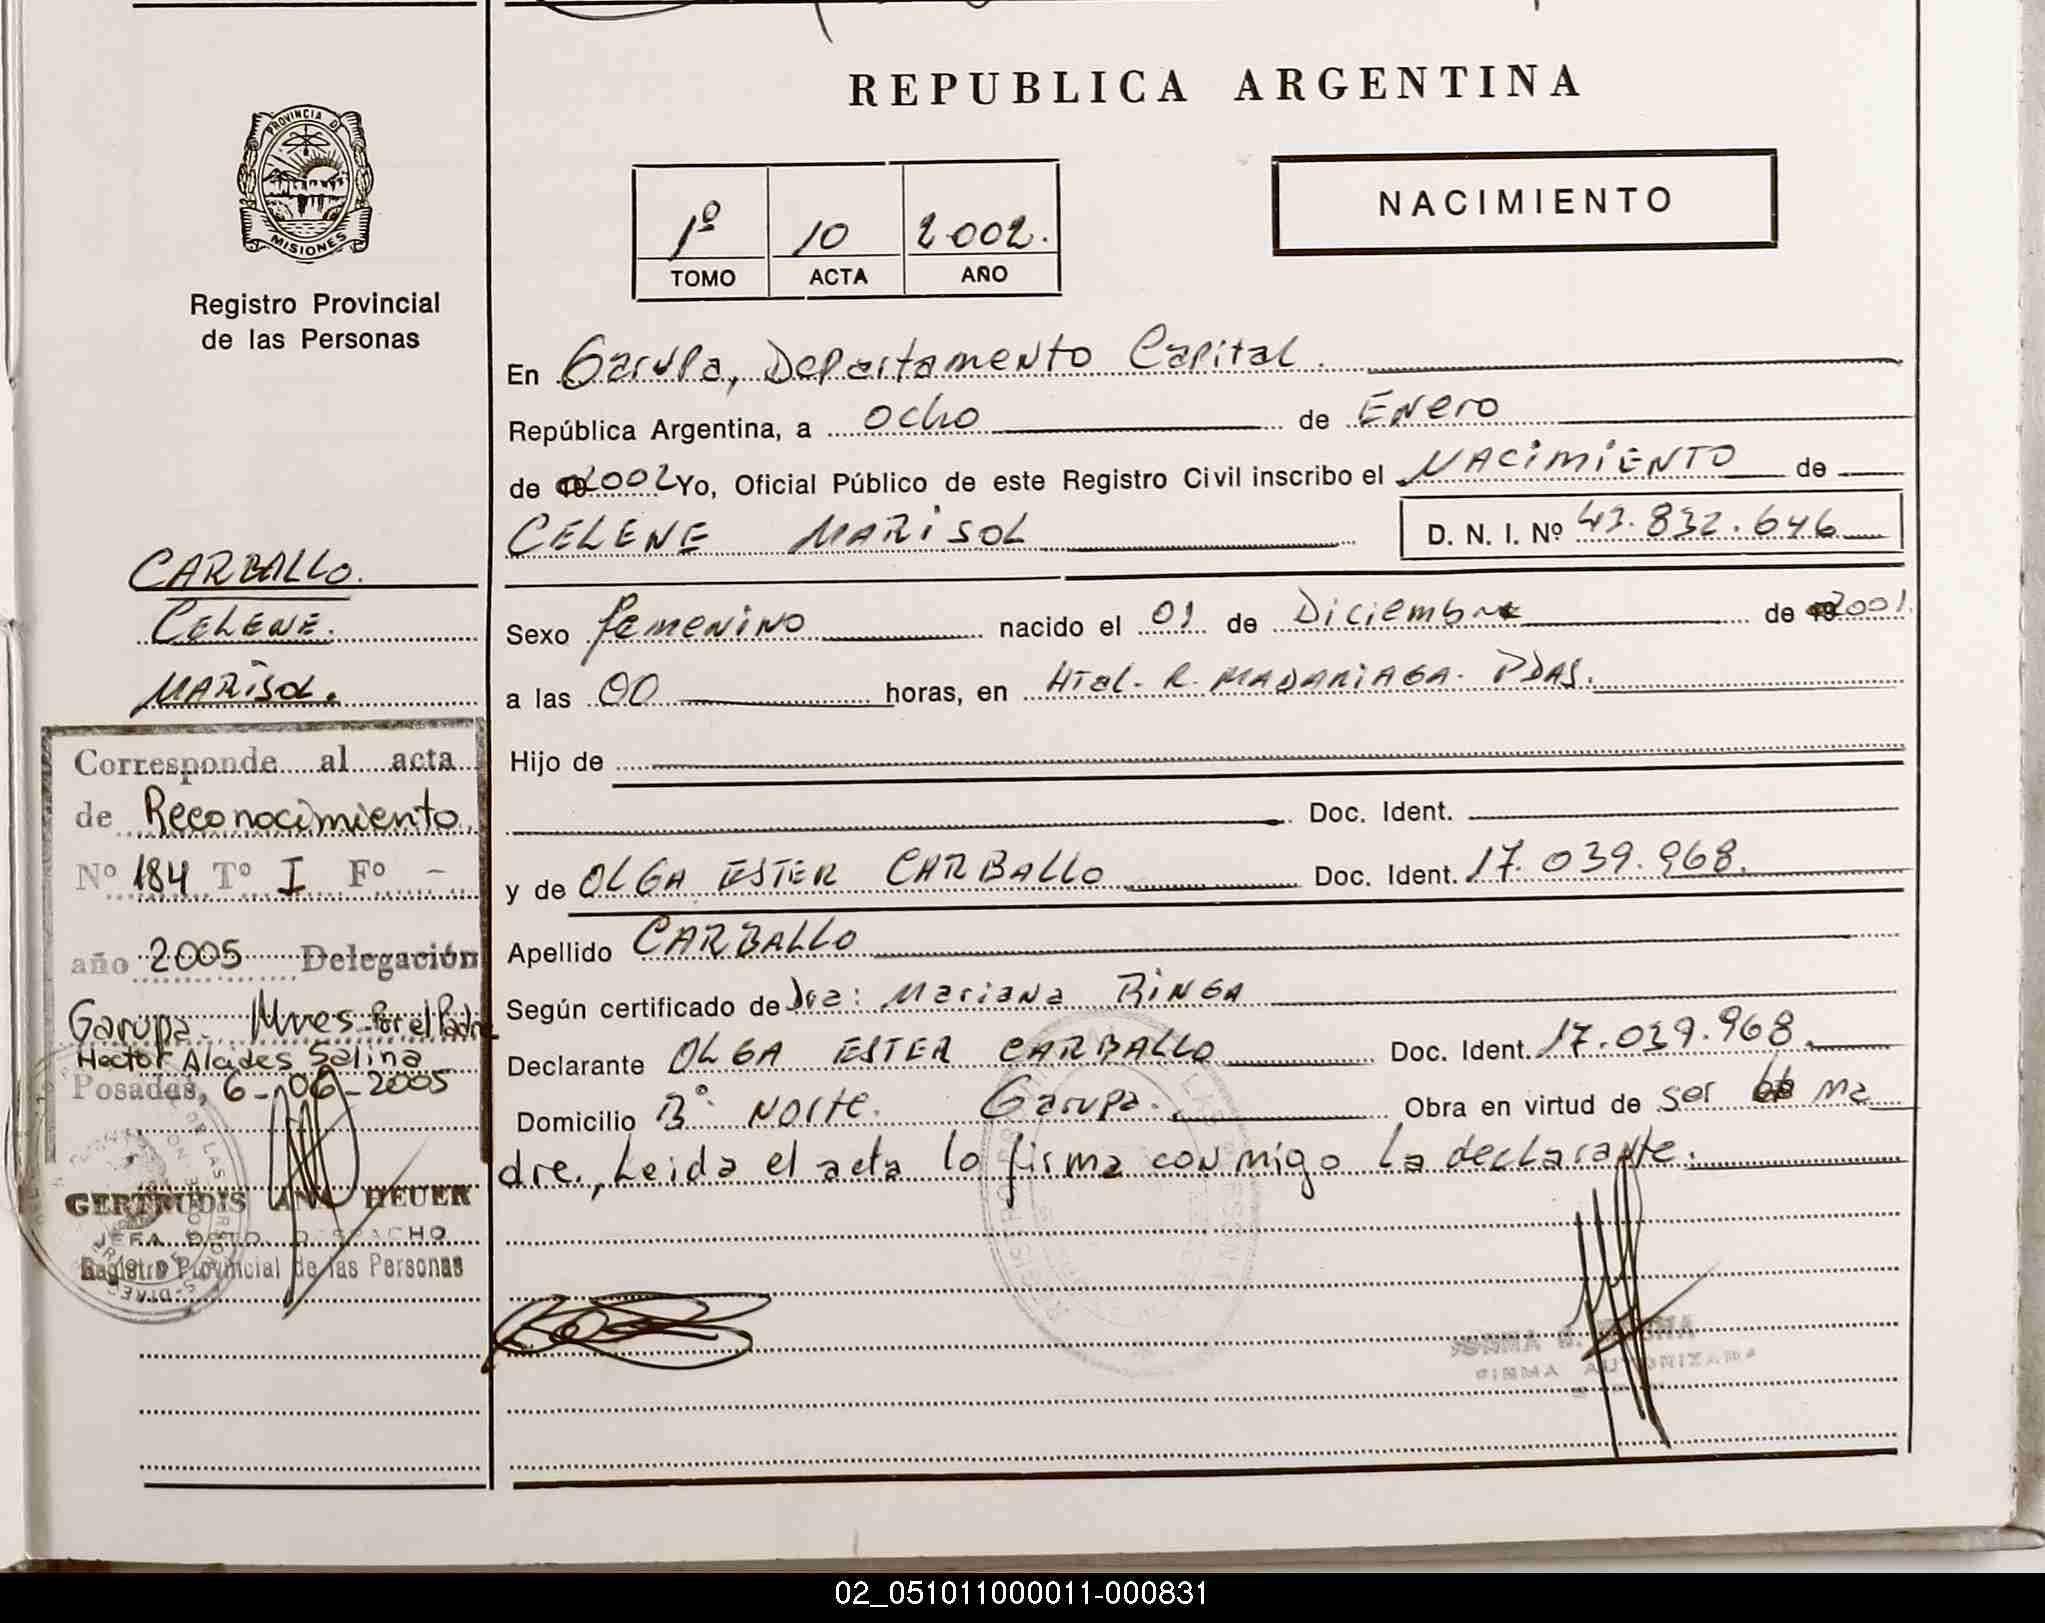 REPUBLICA ARGENTINA
PROVINCIA DE
MISIONES
Registro Provincial
de las Personas
1º 10 2002.
TOMO ACTA AÑO
NACIMIENTO
En Garupa, Departamento Capital.
República Argentina, a ocho de Enero
de 2002 Yo, Oficial Público de este Registro Civil inscribo el NACIMIENTO de
CELENE MARISOL D. N. I. Nº 43.832.646
Sexo femenino nacido el 01 de Diciembre de 2001.
a las 00 horas, en Htal. R. MADARIAGA. PDAS.
Hijo de
Doc. Ident.
y de OLGA ESTER CARBALLO Doc. Ident. 17.039.968.
Apellido CARBALLO
Según certificado de Dra: Mariana RINGA
Declarante OLGA ESTER CARBALLO Doc. Ident. 17.039.968.
Domicilio Bº NORTE. Garupa. Obra en virtud de ser la ma
dre., Leida el acta lo firma conmigo La declarante.
FIRMA AUTORIZADA
CARBALLO.
CELENE.
MARISOL.
Corresponde al acta
de Reconocimiento
Nº 184 Tº I Fº -
año 2005 Delegación
Garupa. Mnes. Por el Padre
Hector Alcides Salina
Posadas, 6-06-2005
GERTRUDIS ANA HEUER
JEFA DPTO. DESPACHO
Registro Provincial de las Personas
02_051011000011-000831